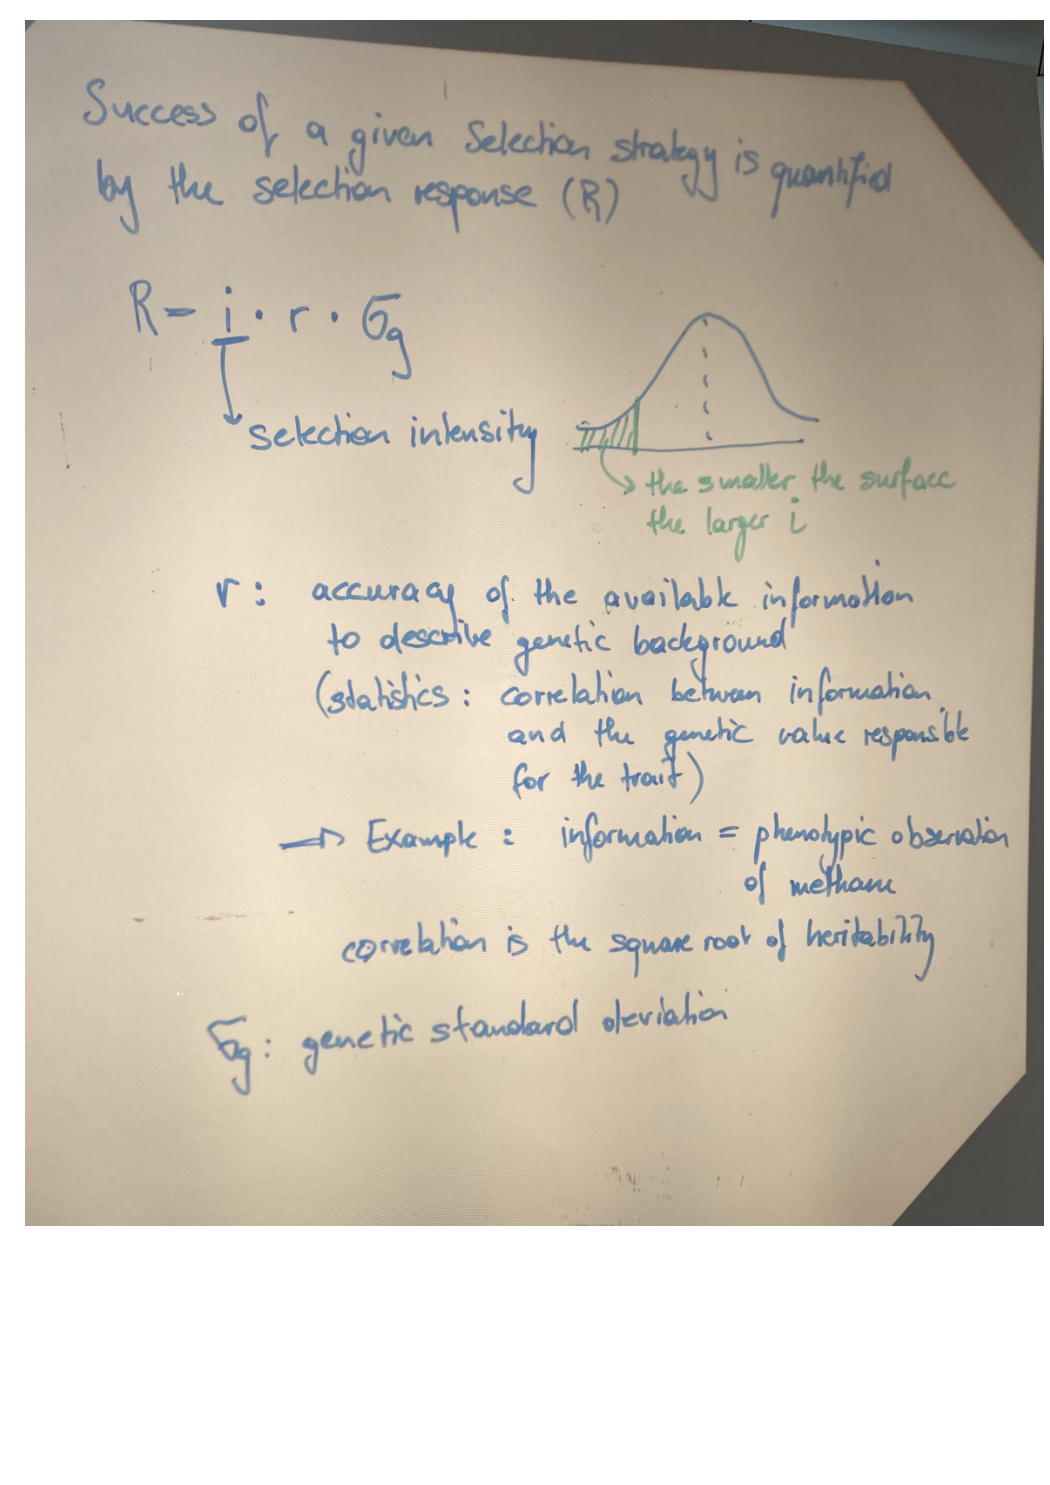 Success of a given Selection strategy is quantified
by the selection response (R)
R = i · r · σg
selection intensity
the smaller the surface
the larger i
r : accuracy of the available information
to describe genetic background
(statistics : correlation between information
and the genetic value responsible
for the trait)
→ Example : information = phenotypic observation
of methane
correlation is the square root of heritability
σg : genetic standard deviation